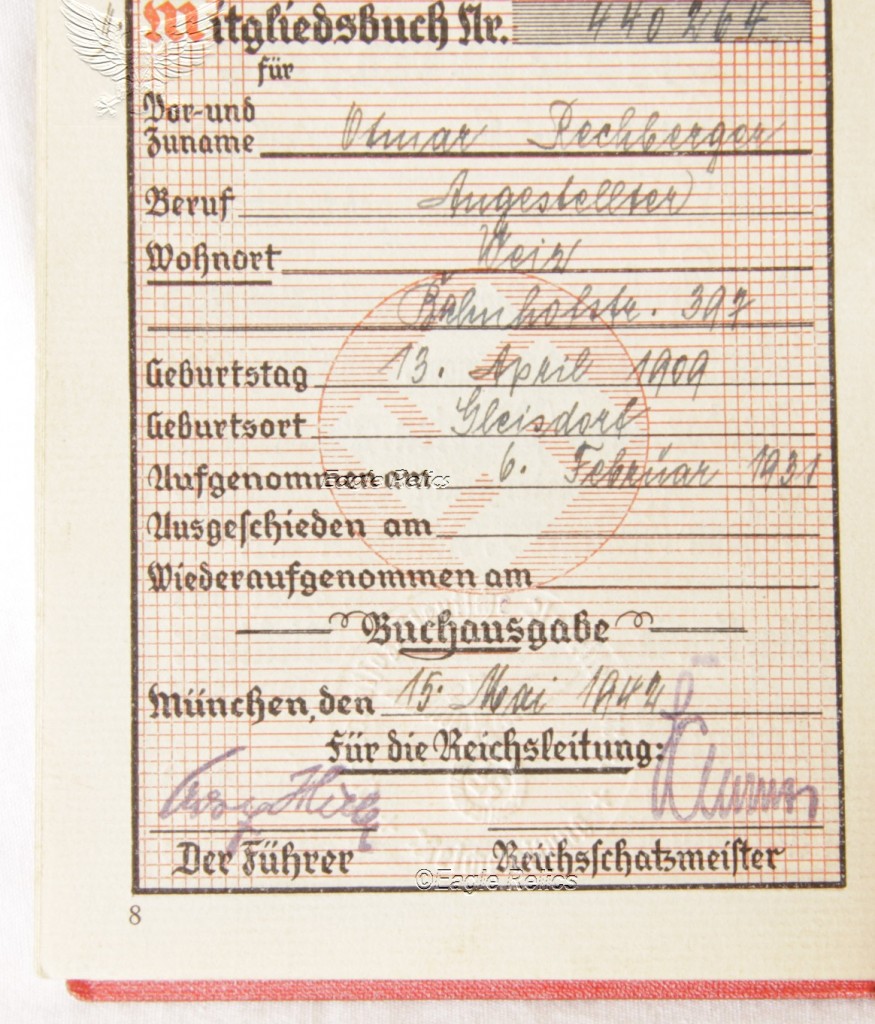 Mitgliedsbuch Nr. 440264
für
Vor- und
Zuname Otmar Rechberger
Beruf Angestellter
Wohnort Weiz
Bahnhofstr. 397
Geburtstag 13. April 1909
Geburtsort Gleisdorf
Aufgenommen am 6. Februar 1931
Eagle Relics
Ausgeschieden am
Wiederaufgenommen am
Buchausgabe
München, den 15. Mai 1942
Für die Reichsleitung:
Der Führer Reichsschatzmeister
©Eagle Relics
8